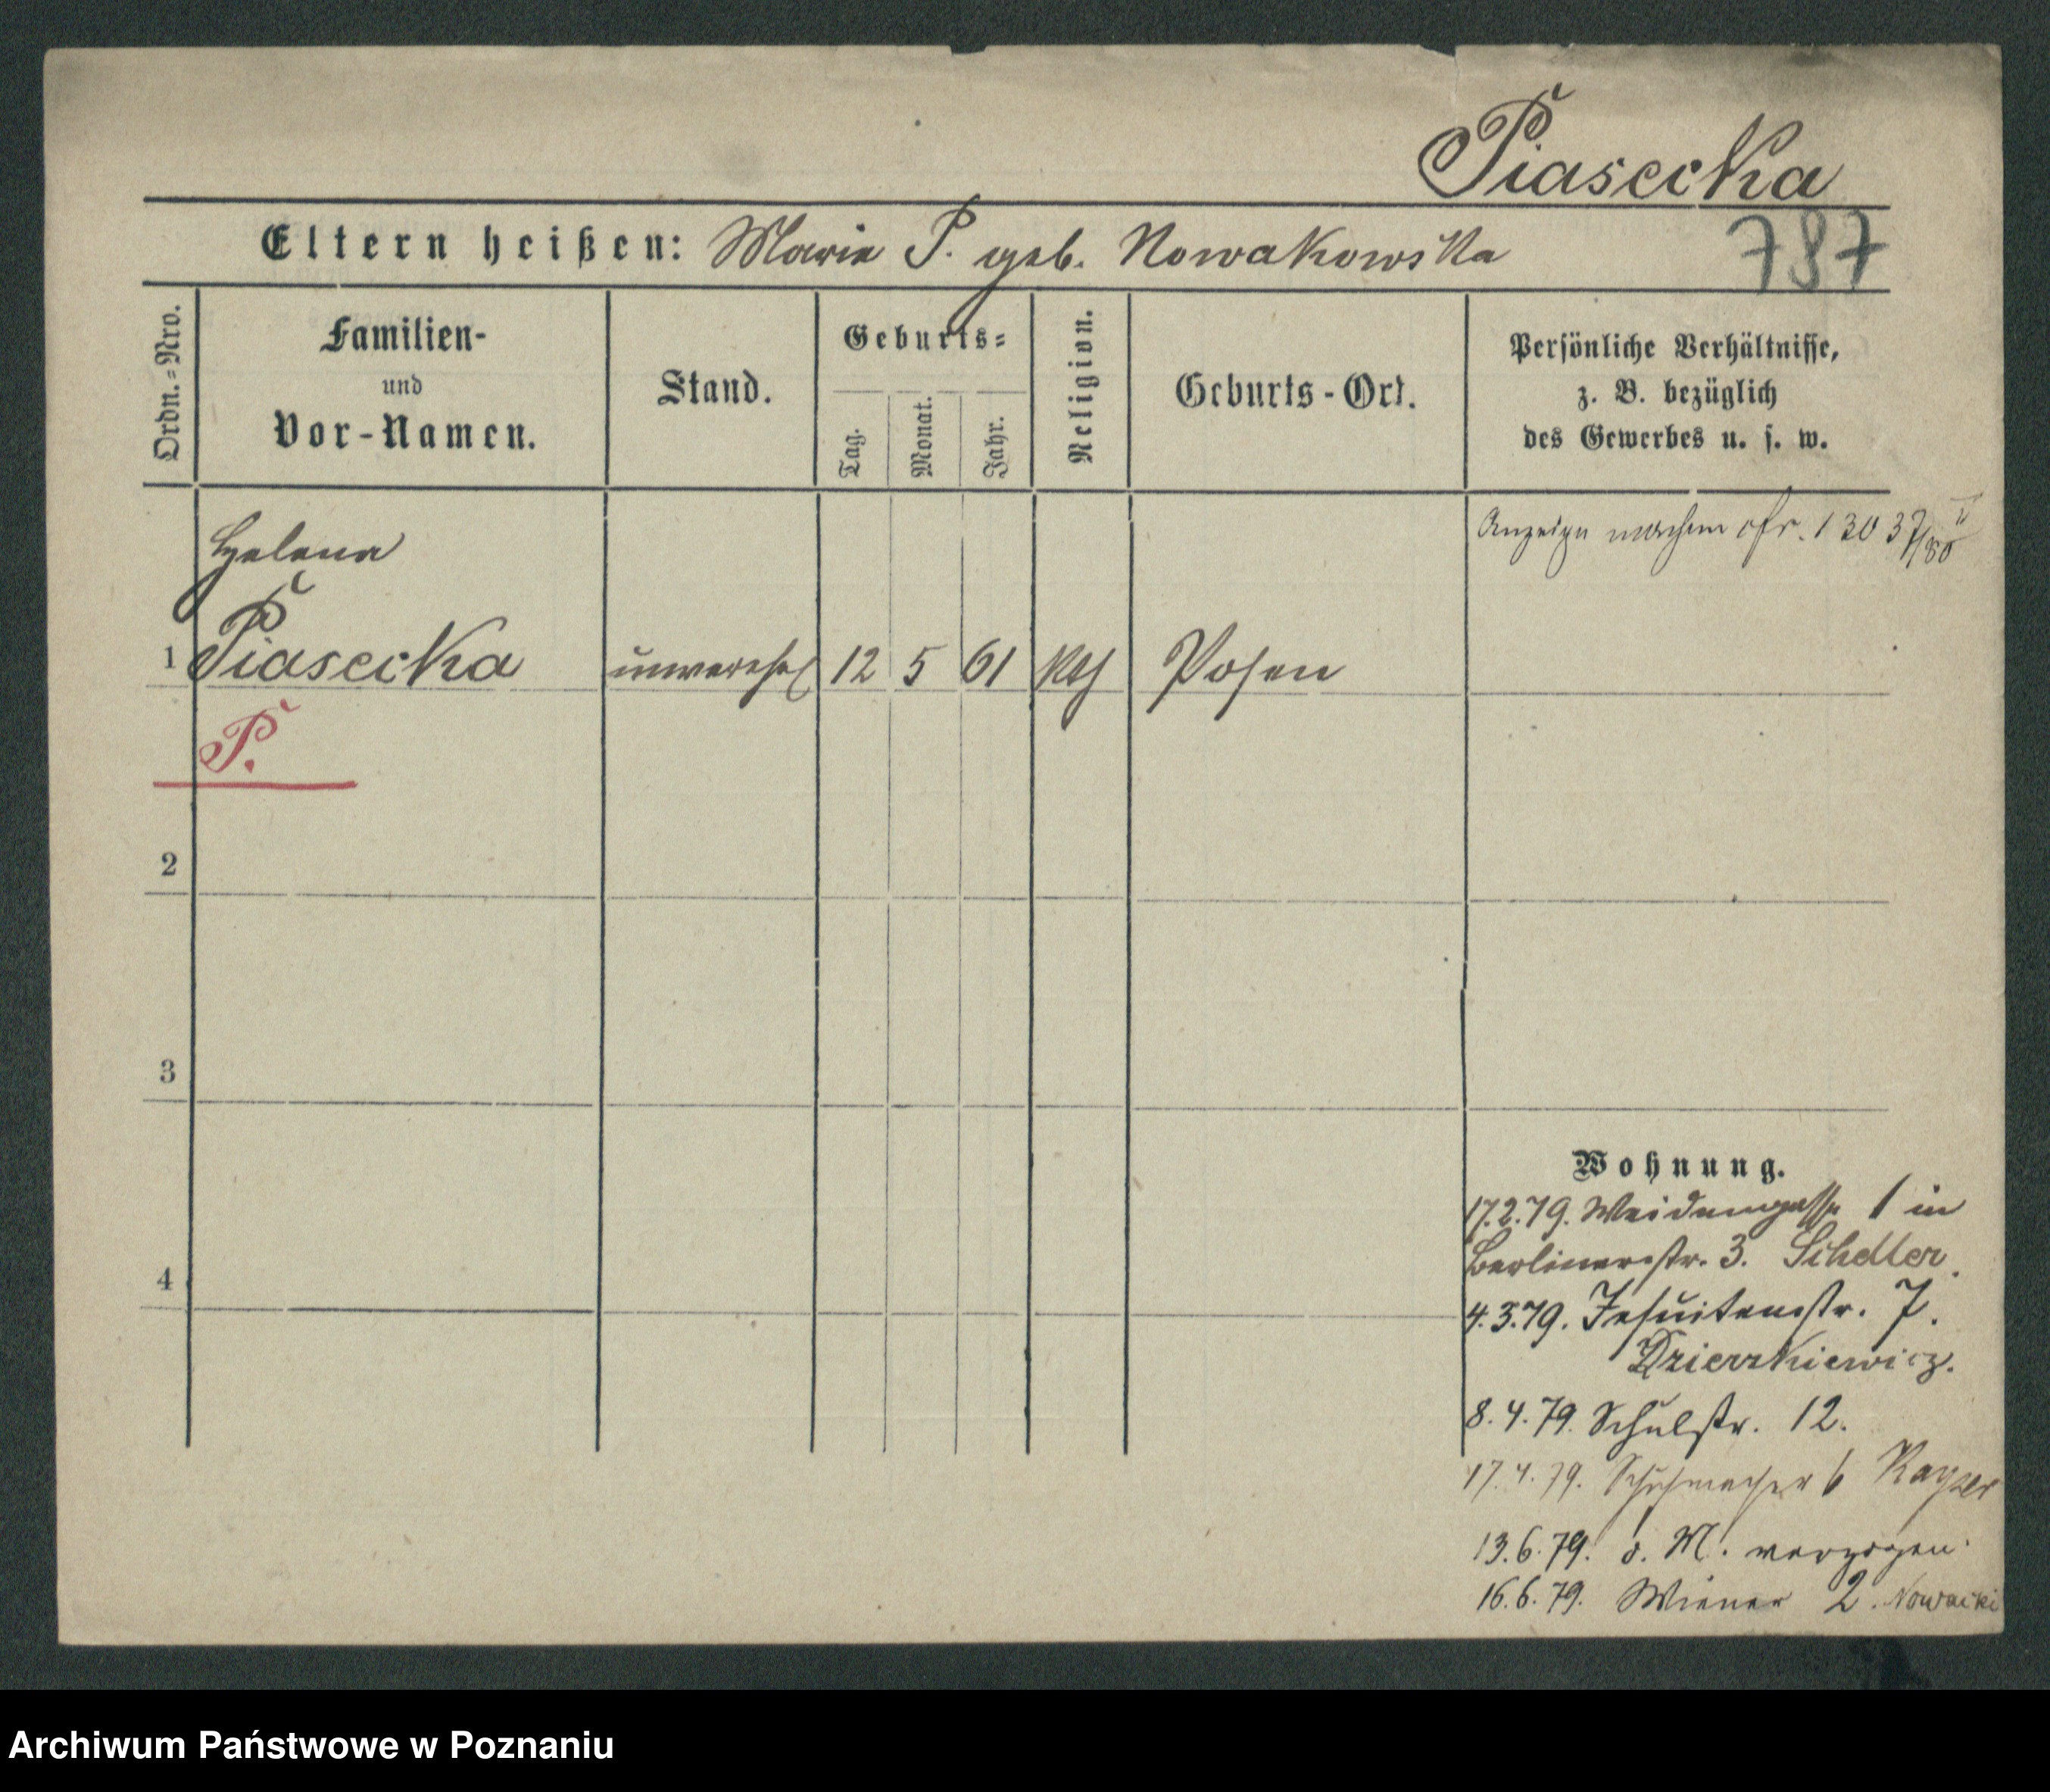 Piasecka
Eltern heißen: Marie P. geb. Nowakowska
787
Ordn.=Nro.
Familien-
und
Vor-Namen.
Stand.
Geburts=
Tag.
Monat.
Jahr.
Religion.
Geburts-Ort.
Persönliche Verhältnisse,
z. B. bezüglich
des Gewerbes u. s. w.
Anzeige machen cfr. 13037/80 II
Helena
1 Piasecka unverehel 12 5 61 kth Posen
P.
2
3
4
Wohnung.
17.2.79. Weidengasse 1 in
Berlinerstr. 3. Schdler.
4.3.79. Jesuitenstr. 7.
Dzierzkiewicz.
8.4.79. Schulstr. 12.
17.4.79. Schuhmacher 6 Kayser
13.6.79. o. M. verzogen.
16.6.79. Wiener 2. Nowacki
Archiwum Państwowe w Poznaniu